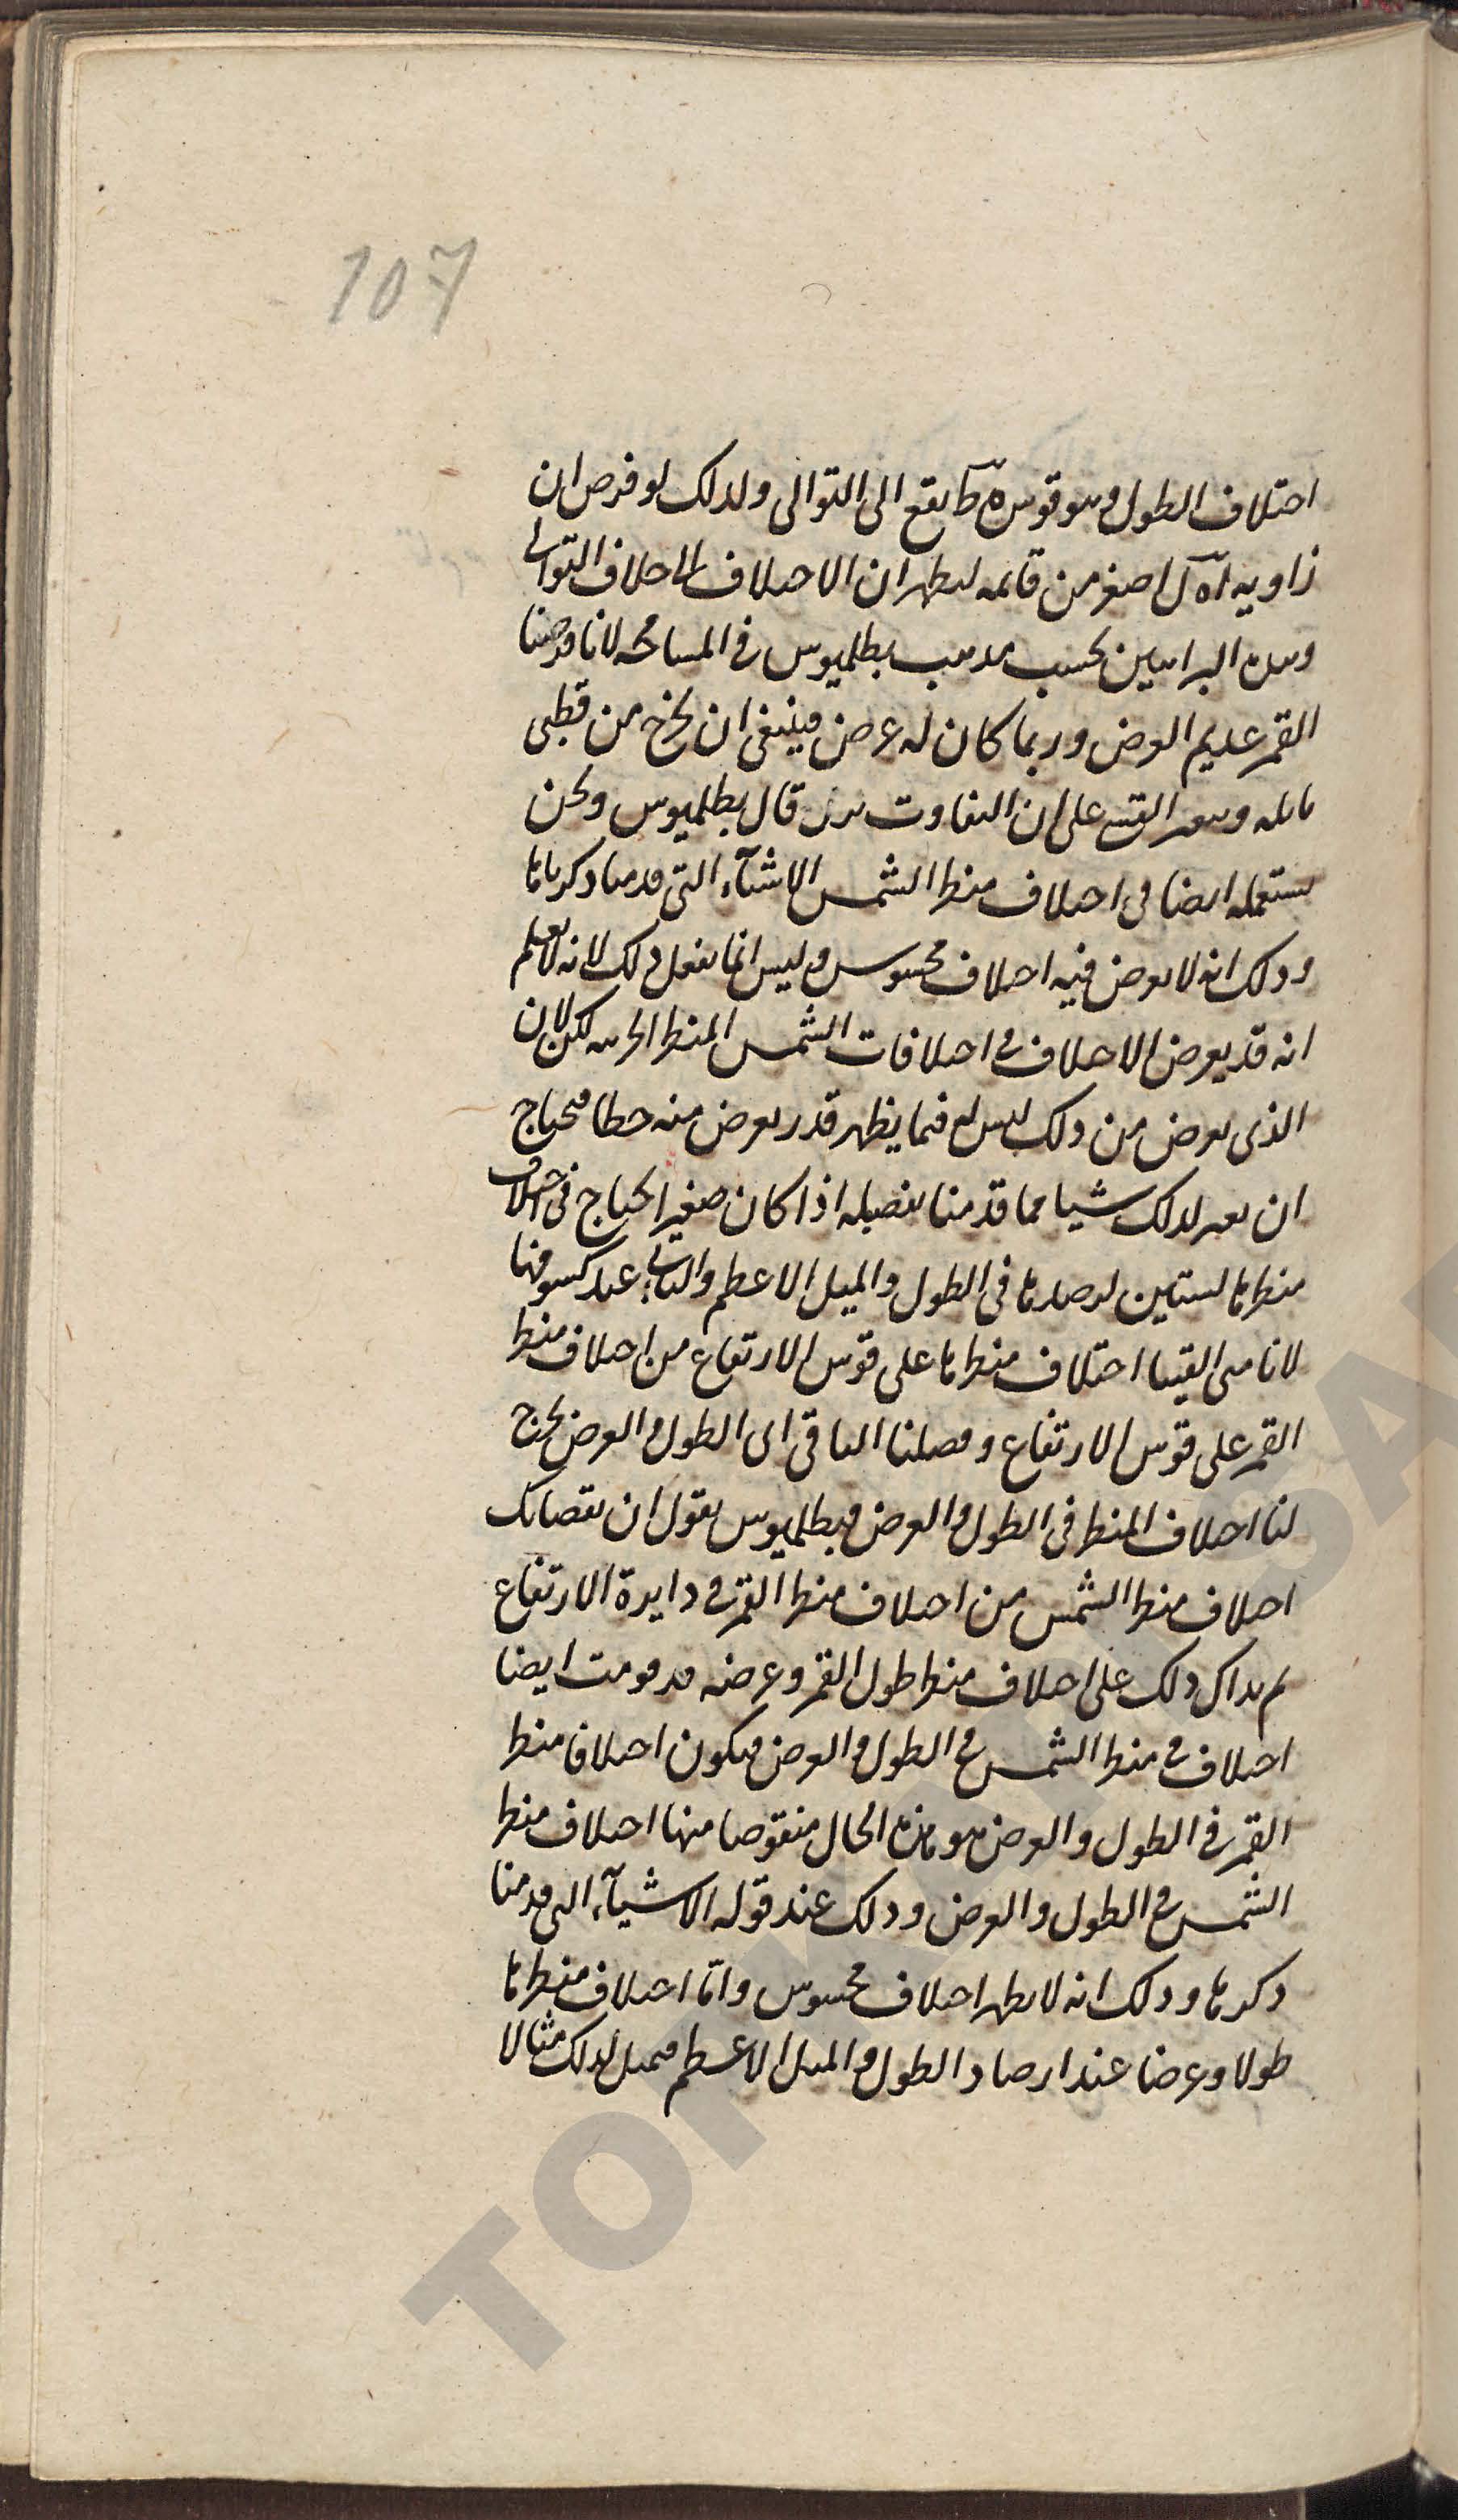 107
احتلاف الطول وهو قوس ه ط يقع الى التوالى ولدلك لو فرص ان
زاويه اه ل اصغر من قائمه لىظهر ان الاحتلاف الى احلاف التوالى
وهده البراهين بحسب مدهب بطلميوس فى المسامحه لانا فرضنا
القمر عديم العرض وربما كان له عرض فينبغى ان يخرج من قطبى
على ان التفاوت قال بطلميوس ونحن
نستعمله ايضا فى احتلاف منظر الشمس الاشيآء التى قدمنا دكرناها
ودلك انه لا يعرض فيه احتلاف محسوس وليس انما نفعل دلك لانه لا نعلم
انه قد يعرض الاحتلاف فى احتلافات الشمس المنظر لكن لان
الذى يعرض من دلك ليس فيما يظهر قدر يعرض منه خطا محتاج
ان لدلك شيا مما قدمنا تفصيله اذا كان صغيرا نحتاج فى احتلاف
منظرها لستين لرصدها فى الطول والميل الاعظم والثانى عند كسوفها
لانا متى القينا احتلاف منظرها على قوس الارتفاع من احتلاف منظر
القمر على قوس الارتفاع وفصلنا الباقى الى الطول والعرض يخرج
لنا احتلاف المنظر فى الطول والعرض فبطلميوس يقول ان نقصانك
احتلاف منظر الشمس من احتلاف منظر القمر فى دايرة الارتفاع
ثم دلك على احتلاف منظر طول القمر وعرضه قد قومت ايضا
احتلاف فى منظر الشمس فى الطول والعرض فيكون احتلاف منظر
القمر فى الطول والعرض هو بهذه الحال منقوصا منها احتلاف منظر
الشمس فى الطول والعرض ودلك عند قوله الاشيآء التى قدمنا
دكرها ودلك انه لا يظهر احتلاف محسوس وامّا احتلاف منظرها
طولا وعرضا عند ارصاد الطول والميل الاعظم فنمثل لدلك مثالا